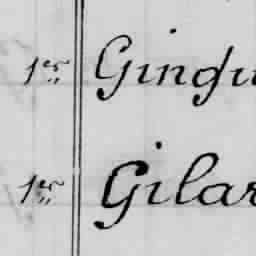 1er Gingu
1er Gilar